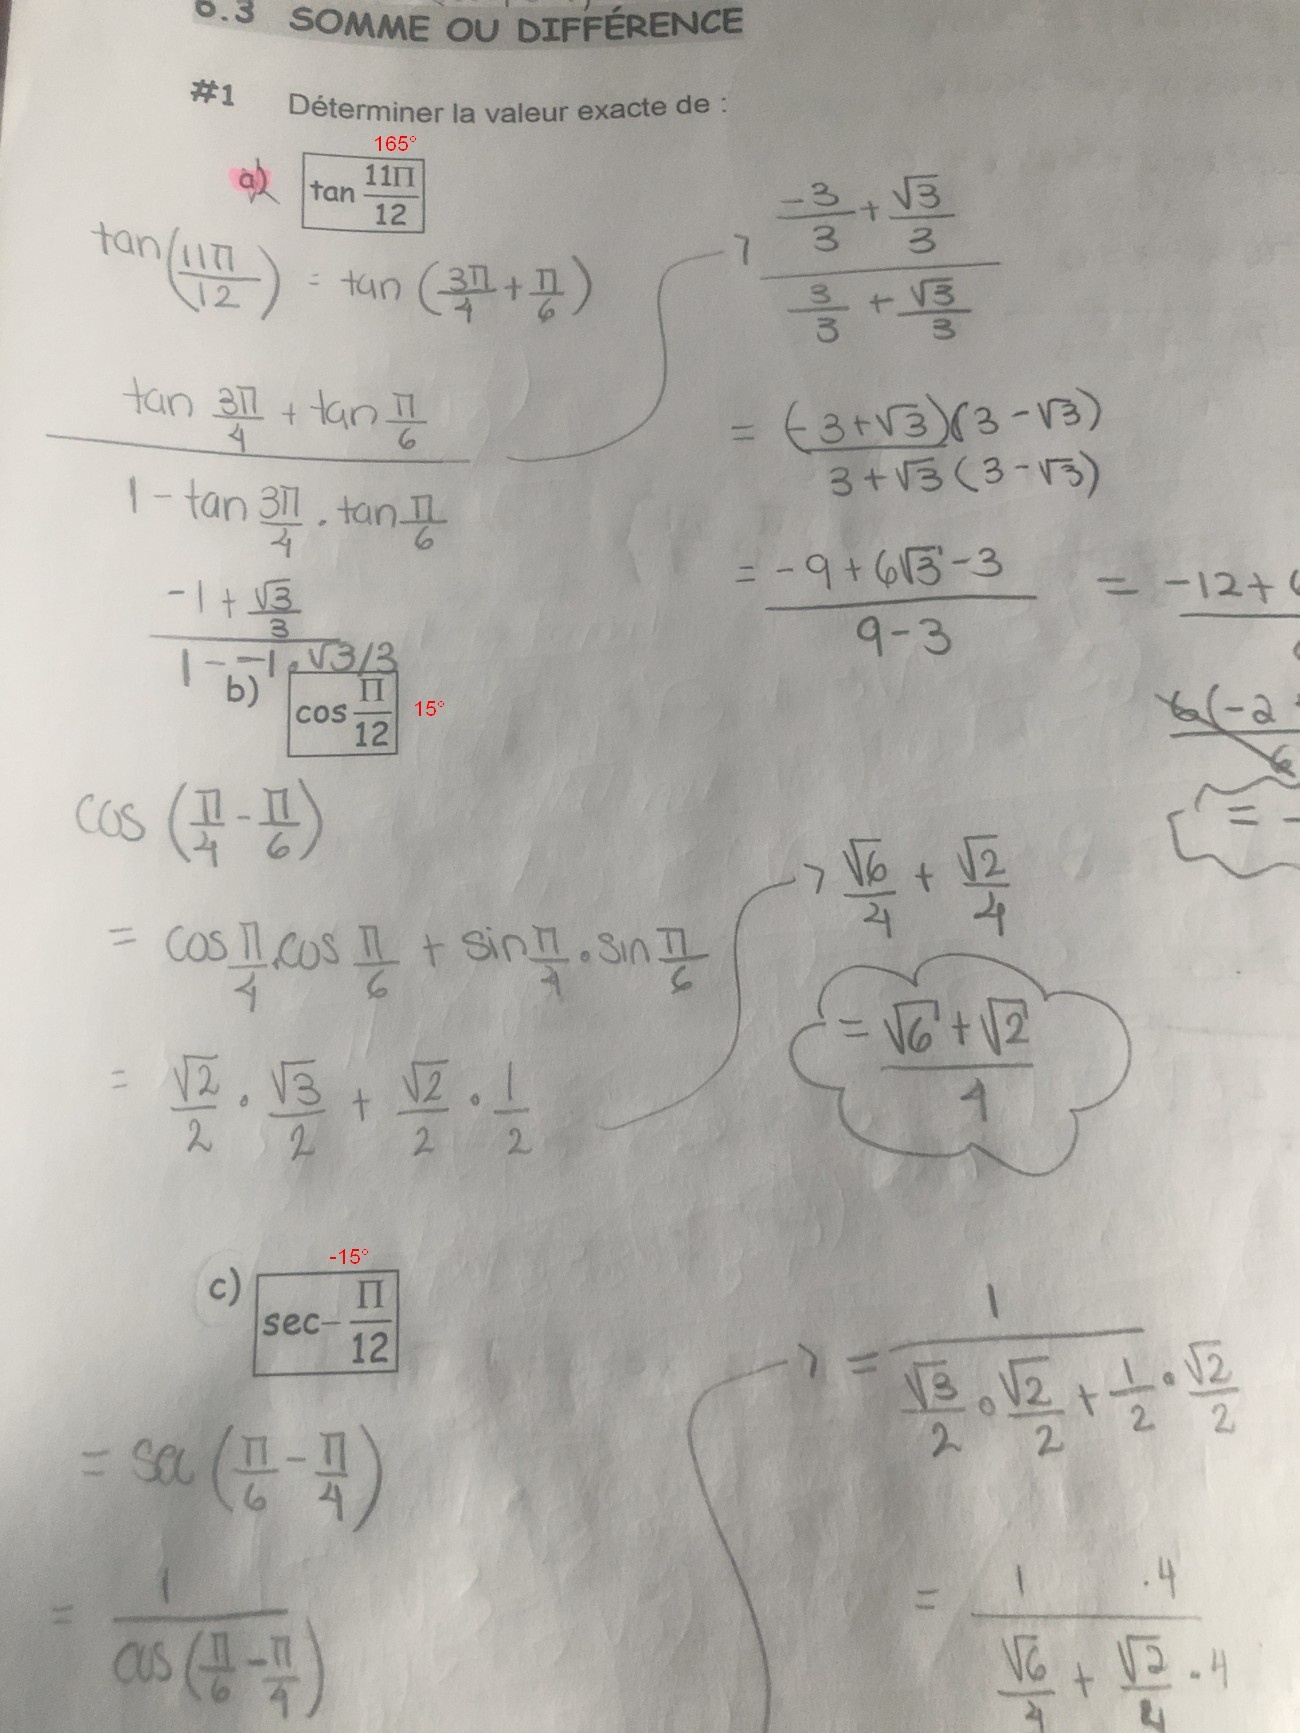 6.3 SOMME OU DIFFÉRENCE
#1 Déterminer la valeur exacte de :
165°
a) tan 11Π/12
tan(11Π/12) = tan (3Π/4 + Π/6)
(tan 3Π/4 + tan Π/6) / (1 - tan 3Π/4 . tan Π/6)
(-1 + √3/3) / (1 - -1 . √3/3)
(-3/3 + √3/3) / (3/3 + √3/3)
= (-3+√3)(3-√3) / 3+√3(3-√3)
= (-9+6√3-3) / (9-3) = -12+
6(-2
6
= -
b) cos Π/12 15°
cos (Π/4 - Π/6)
= cos Π/4 . cos Π/6 + sin Π/4 . sin Π/6
= √2/2 . √3/2 + √2/2 . 1/2
√6/4 + √2/4
= (√6+√2)/4
-15°
c) sec - Π/12
= sec (Π/6 - Π/4)
= 1 / cos(Π/6 - Π/4)
= 1 / (√3/2 . √2/2 + 1/2 . √2/2)
= 1 .4 / (√6/4 + √2/4 . 4)